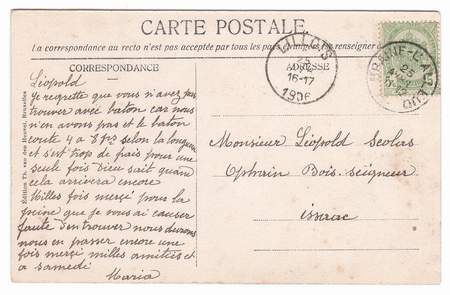 CARTE POSTALE
La correspondance au recto n'est pas acceptée par tous les pays étrangers, en renseigner
CORRESPONDANCE
ADRESSE
LILLOIS
16-17
1906
BRAINE-L'ALLEUD
Edition Th. van den Heuvel, Bruxelles
Léopold
Je regrette que vous n'avez pu
trouver avec baton car nous
n'en avons pas et le baton
coute 4 a 5 frs selon la longueur
et s'est trop de frais pour une
seule fois Dieu sait quand
cela arrivera encore
Milles fois merçi pour la
peine que je vous ai causer
faute d'en trouver nous durons
nous en passer encore une
fois merçi milles amitiés et
a samedi
Maria
Monsieur Léopold Scolas
Ophrain Bois-seigneur
issaac